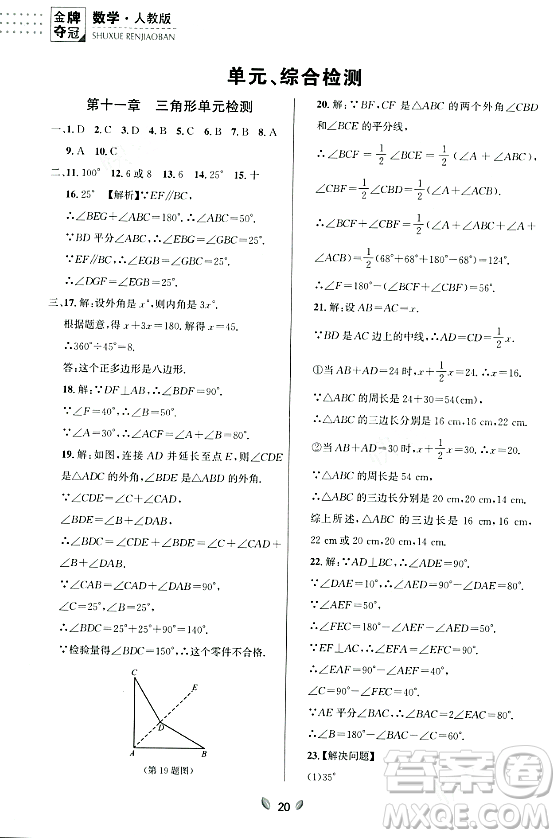 金牌夺冠 数学·人教版
SHUXUE RENJIAOBAN
单元、综合检测
第十一章 三角形单元检测
一、1. D 2. C 3. D 4. A 5. D 6. B 7. B 8. A
9. A 10. C
二、11. 100° 12. 6 或 8 13. 6 14. 25° 15. 十
16. 25° 【解析】∵EF∥BC,
∴∠BEG+∠ABC=180°. ∴∠ABC=50°.
∵BD 平分∠ABC, ∴∠GBC=25°.
∵EF∥BC,
∴∠DGF=∠GBC=25°. ∴∠DGE=155°.
三、17. 解:设外角是 x°,则内角是 3x°.
根据题意,得 x+3x=180. 解得 x=45.
∴360°÷45°=8.
答:这个正多边形是八边形.
18. 解:∵DF⊥AB, ∴∠AFE=90°.
∴∠A+∠AEF=∠D+∠B.
∵∠A=30°, ∠D=40°, ∴∠B=50°.
∴∠ACB=180°-∠A-∠B=100°.
19. 解:如图,连接 AD 并延长至点 E,则∠CDE
是△ADC 的外角, ∠BDE 是△ABD 的外角.
∴∠CDE=∠C+∠CAD, ∠BDE=∠B+
∠DAB.
∴∠BDC=∠CDE+∠BDE=∠C+∠CAD+
∠B+∠DAB.
∵∠CAB=∠CAD+∠DAB=90°, ∠B=25°,
∠C=25°,
∴∠BDC=25°+25°+90°=140°.
∵检验量得∠BDC=150°, ∴这个零件不合格.
C
E
D
A
B
(第 19 题图)
20. 解:∵BF, CF 是△ABC 的两个外角∠CBD
和∠BCE 的平分线,
∴∠BCF=1/2∠BCE=1/2(∠A+∠ABC),
∠CBF=1/2∠CBD=1/2(∠A+∠ACB).
∴∠BCF+∠CBF=1/2(∠A+∠ABC+∠A+
∠ACB)=1/2(68°+68°+180°-68°)=124°.
∴∠F=180°-(∠BCF+∠CBF)=56°.
21. 解:设 AB=AC=x.
∵BD 是 AC 边上的中线, ∴AD=CD=1/2x.
①当 AB+AD=24 时, x+1/2x=24. ∴x=16.
∴△ABC 的周长=24+30=54(cm).
∴△ABC 的三边长分别是 16 cm, 16 cm, 22 cm.
②当 AB+AD=30 时, x+1/2x=30. ∴x=20.
∴△ABC 的周长=24+30=54(cm).
∴△ABC 的三边长分别是 20 cm, 20 cm, 14 cm.
综上所述, △ABC 的三边长为 16 cm, 16 cm,
22 cm 或 20 cm, 20 cm, 14 cm.
22. 解:∵AD⊥BC, ∴∠ADE=90°.
∵∠DAE=10°, ∴∠AED=80°.
∵∠AEF=50°,
∴∠DEF=∠AED-∠AEF=30°.
∵EF⊥AC, ∴∠EFA=∠EFC=90°.
∴∠C=90°-∠DEF=60°.
∴∠EAF=90°-∠AEF=40°.
∵AE 平分∠BAC,
∴∠BAC=2∠EAF=80°.
∴∠B=180°-∠BAC-∠C=40°.
23. 【解决问题】
(1)35°
20